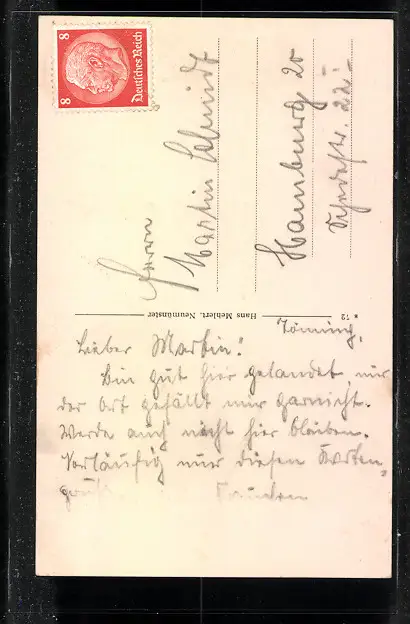 8 Deutsches Reich 8
Herrn
Martin Schmidt
Hamburg 20
22
Hans Mehlert, Neumünster
* 12
Tönning,
Lieber Martin!
Bin gut hier gelandet, nur
der Ort gefällt mir garnicht.
Werde auch nicht hier bleiben.
Vorläufig nur diesen Karten-
gruß.